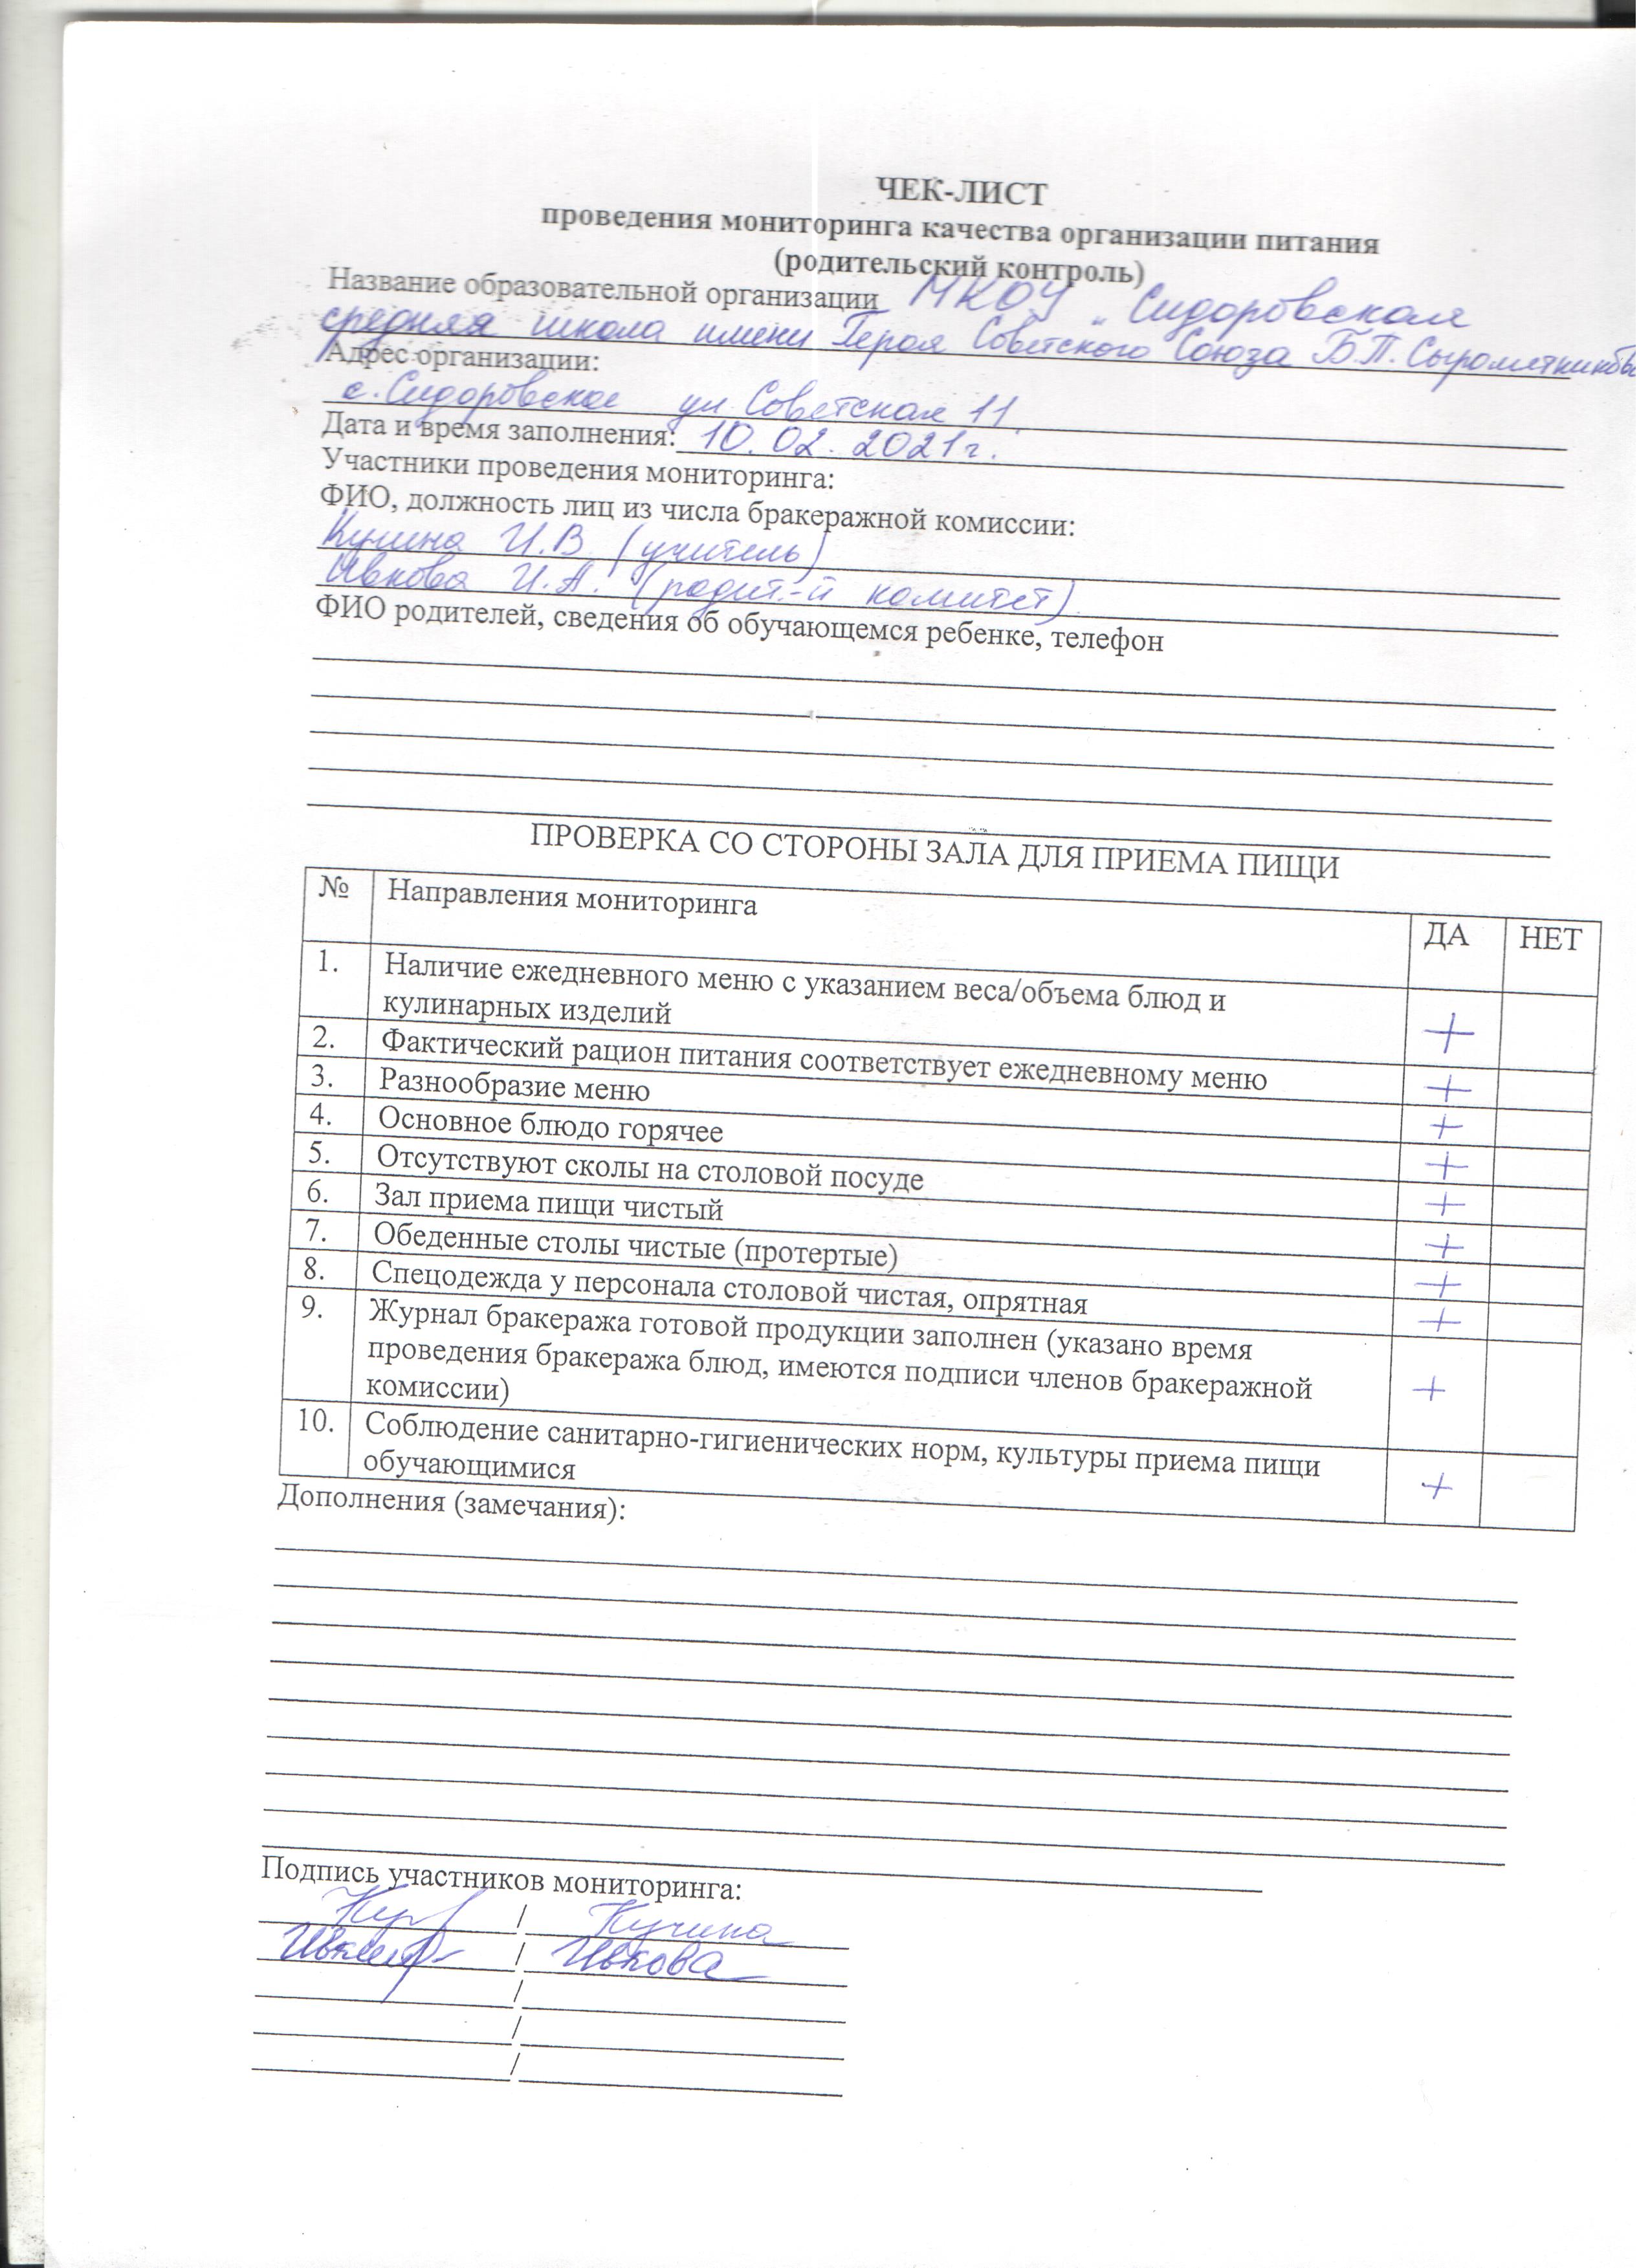 ЧЕК-ЛИСТ
проведения мониторинга качества организации питания
(родительский контроль)
Название образовательной организации МКОУ "Сидоровская
средняя школа имени Героя Советского Союза Б.П. Сыромятникова
Адрес организации:
с. Сидоровское ул. Советская 11.
Дата и время заполнения: 10.02.2021г.
Участники проведения мониторинга:
ФИО, должность лиц из числа бракеражной комиссии:
Кучина И.В (учитель)
Ивкова И.А. (родит.-й комитет).
ФИО родителей, сведения об обучающемся ребенке, телефон
ПРОВЕРКА СО СТОРОНЫ ЗАЛА ДЛЯ ПРИЕМА ПИЩИ
№ Направления мониторинга ДА НЕТ
1. Наличие ежедневного меню с указанием веса/объема блюд и
кулинарных изделий +
2. Фактический рацион питания соответствует ежедневному меню +
3. Разнообразие меню +
4. Основное блюдо горячее +
5. Отсутствуют сколы на столовой посуде +
6. Зал приема пищи чистый +
7. Обеденные столы чистые (протертые) +
8. Спецодежда у персонала столовой чистая, опрятная +
9. Журнал бракеража готовой продукции заполнен (указано время
проведения бракеража блюд, имеются подписи членов бракеражной +
комиссии)
10. Соблюдение санитарно-гигиенических норм, культуры приема пищи
обучающимися +
Дополнения (замечания):
Подпись участников мониторинга:
/ Кучина
/ Ивкова
/
/
/